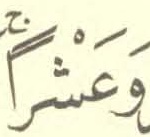 وَعَشْرًا ۚ